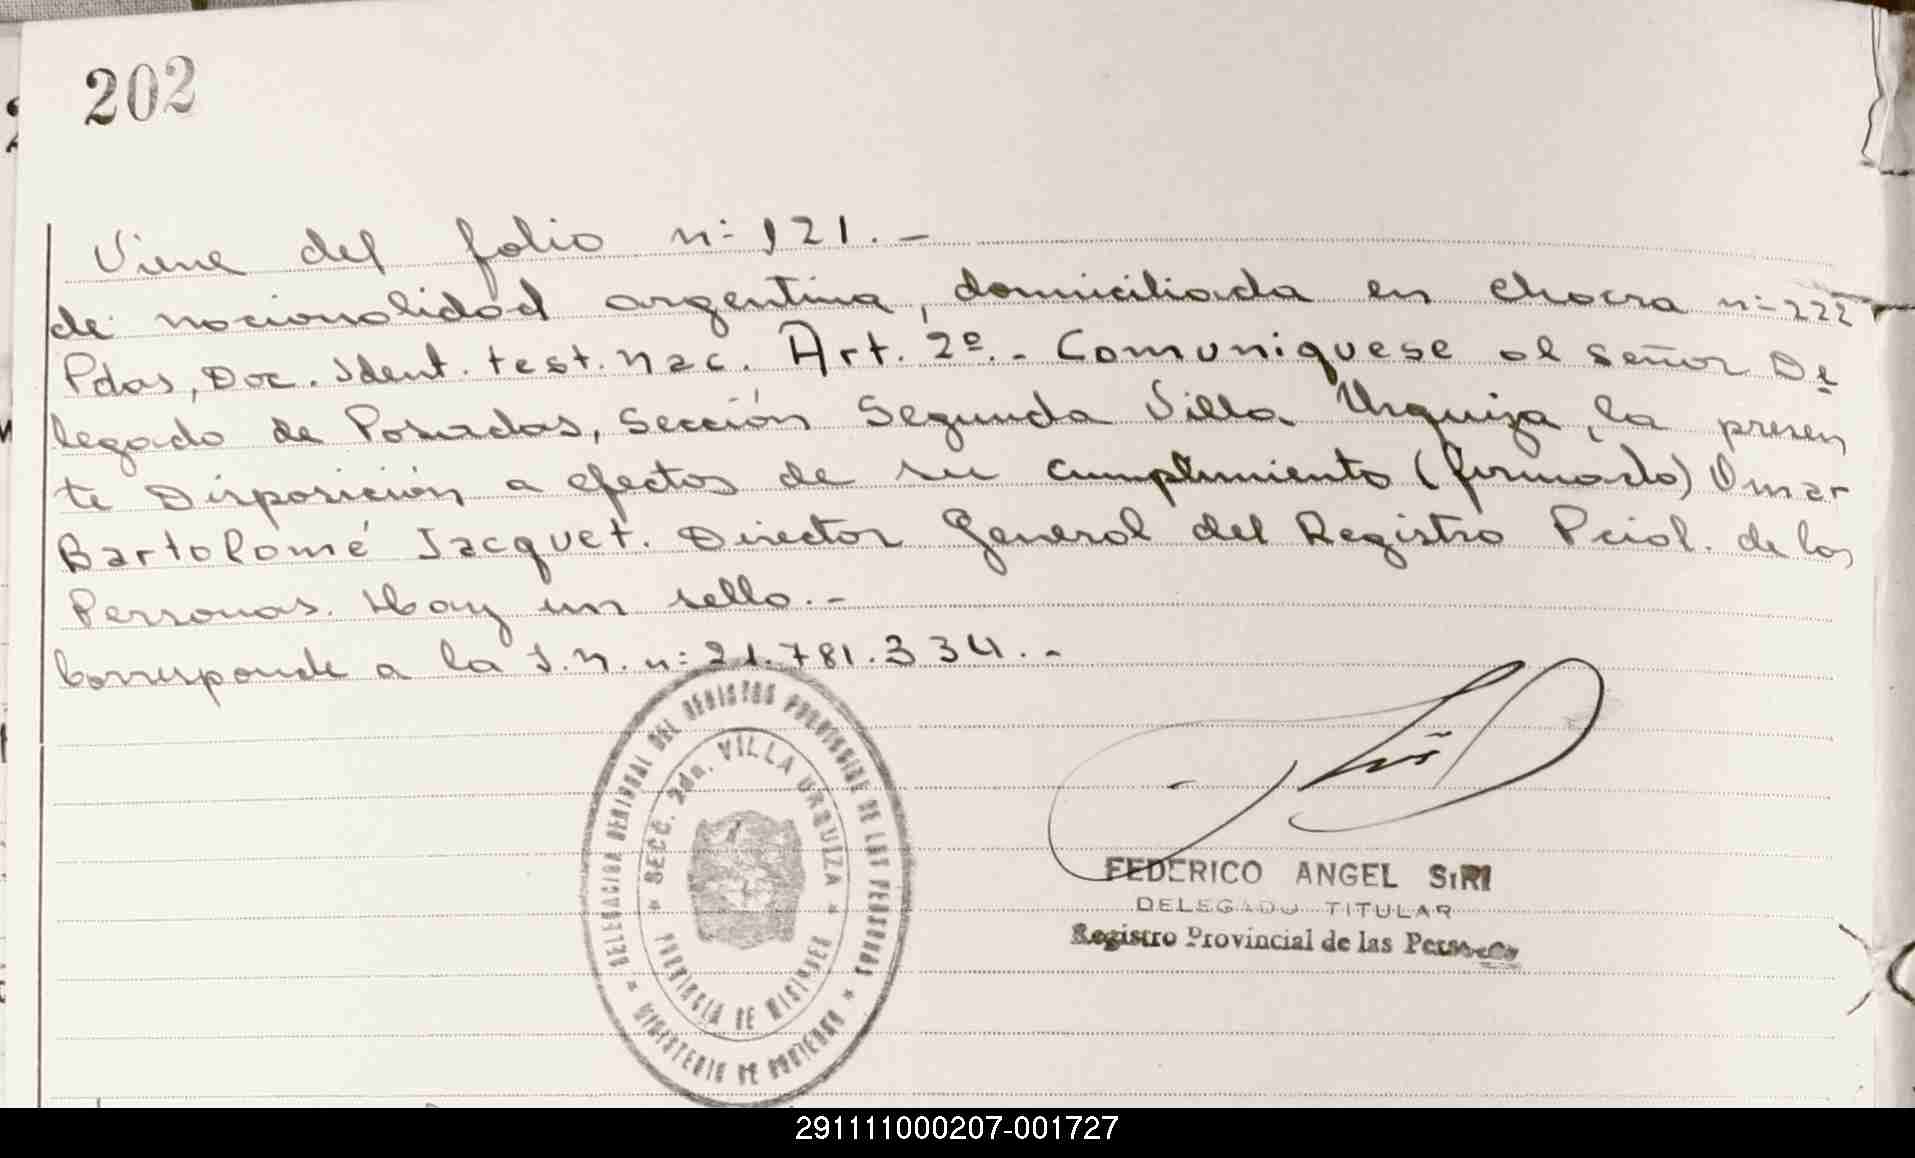 202
Viene del folio nº 121.-
de nacionalidad argentina, domiciliada en chacra nº 222
Pdas, Doc. Ident. test. nac. Art. 2º.- Comuniquese al señor De
legado de Posadas, Sección Segunda Villa Urquiza, la presen
te Disposición a efectos de su cumplimiento (firmado) Omar
Bartolomé Jacquet. Director General del Registro Pcial. de las
Personas. Hay un sello.-
Corresponde a la I.N. nº 21.781.334.-
DELEGACION REGIONAL DEL REGISTRO PROVINCIAL DE LAS PERSONAS
* MINISTERIO DE GOBIERNO *
* SECC. 2da. VILLA URQUIZA *
PROVINCIA DE MISIONES
FEDERICO ANGEL SIRI
DELEGADO TITULAR
Registro Provincial de las Personas
291111000207-001727